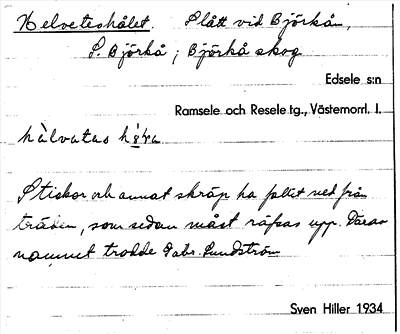 Helveteshålet. Slått vid Björkån,
S. Björkå; Björkå skog
Edsele s:n
Ramsele och Resele tg., Västernorrl. l.
hàlvatas
Stickor och annat skräp ha fallit ned från
träden, som sedan måst räfsas upp. Därav
namnet trodde Gabr. Lundström
Sven Hiller 1934